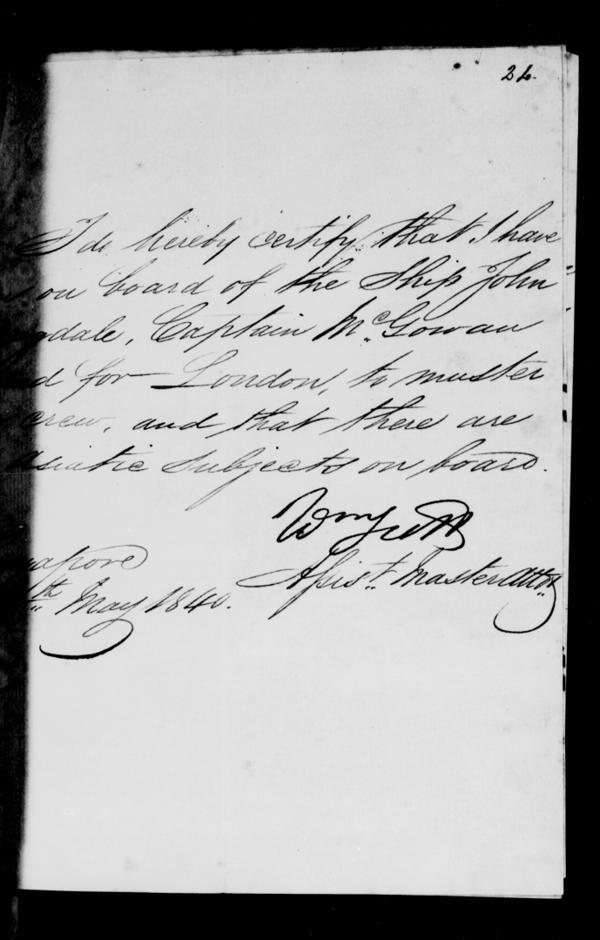 24.
I do hereby certify that I have
on board of the Ship John
gdale, Captain McGowan
d for London, to muster
crew, and that there are
Asiatic Subjects on board.
Wm Scott
apore
Assist. Master Attdt
th May 1840.